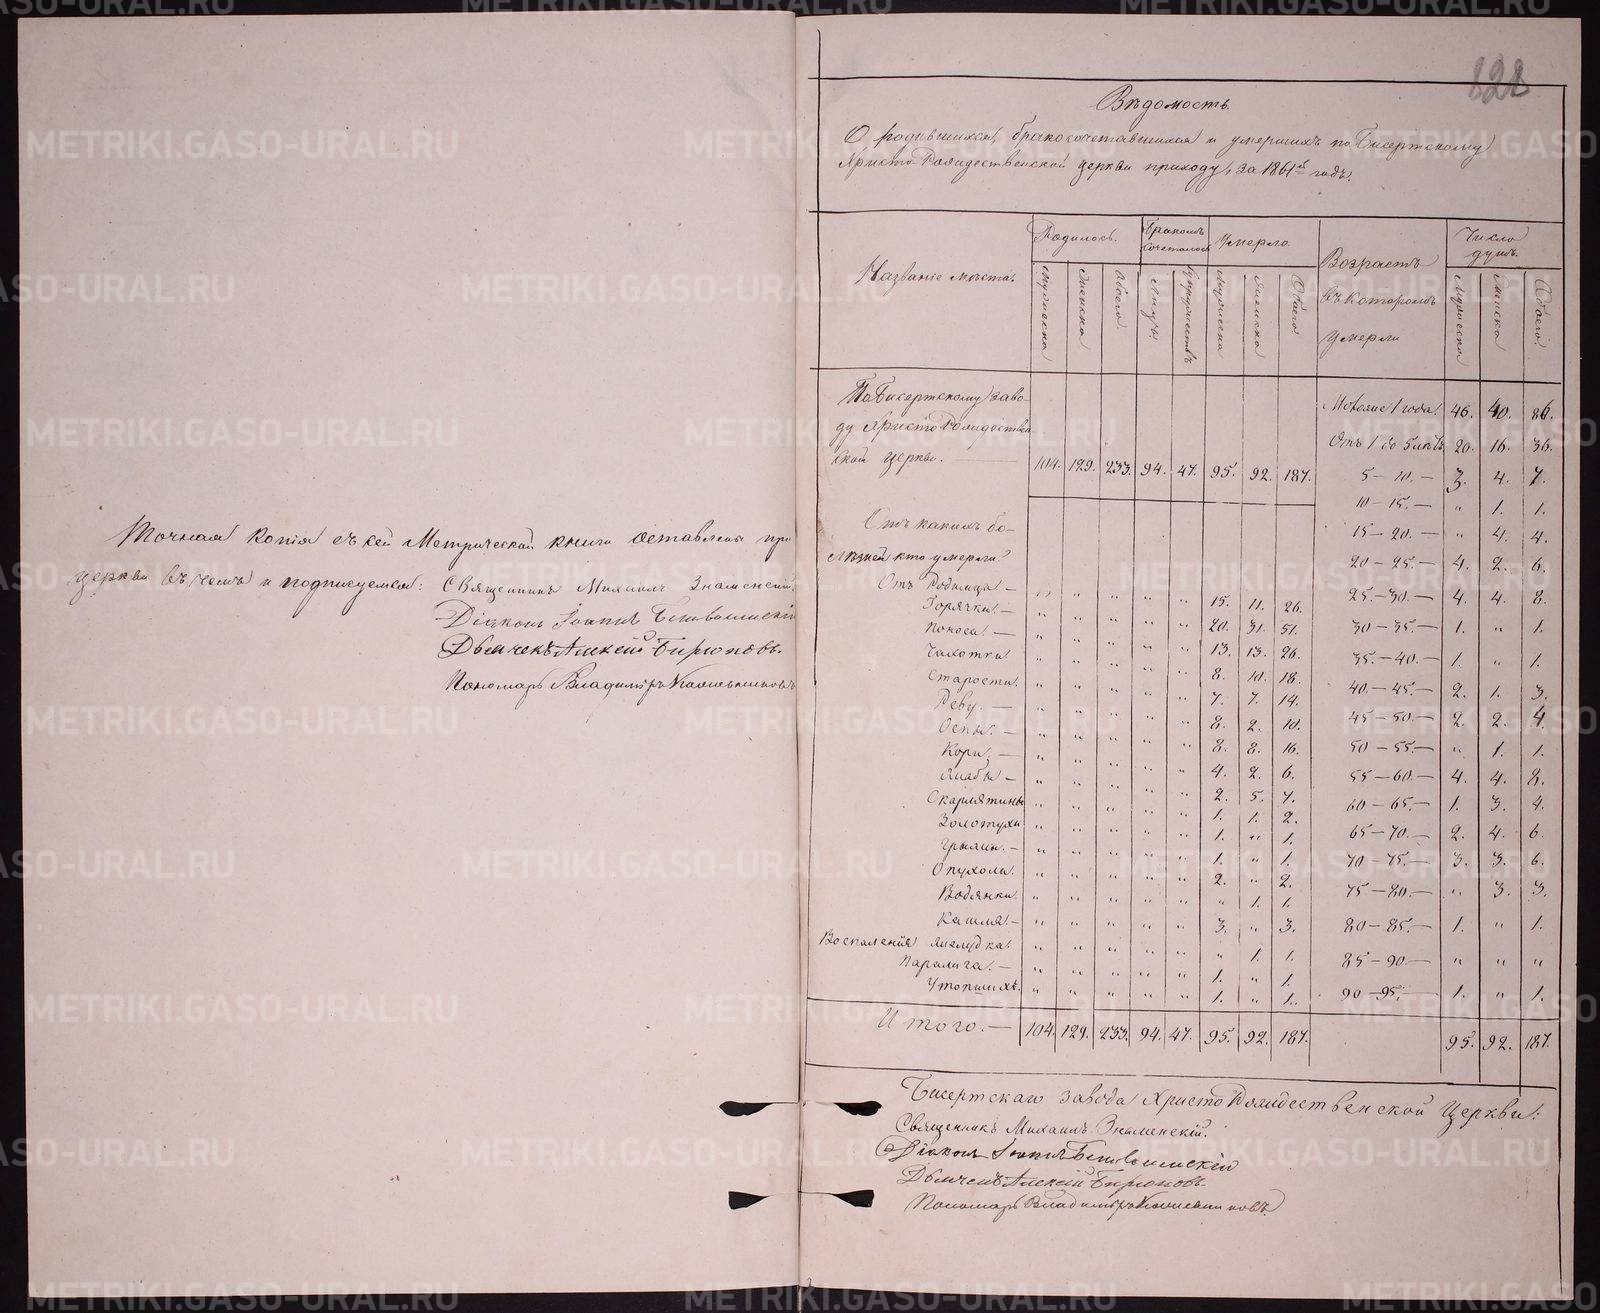 Точная копія съ сей Метрической книги оставлена при
церкви въ чемъ и подписуемся:
Священникъ Михаилъ Знаменскій
Діаконъ Іоаннъ
Дьячекъ Алексій Бирюковъ.
Пономарь Владиміръ
828
Вѣдомость.
О родившихся, бракосочетавшихся и умершихъ по Бисертскому
Христо Рождественской церкви приходу, за 1861й годъ.
Названіе мѣста. Родилось. Бракомъ сочеталось Умерло. Возрастъ въ которомъ умерли Число душъ.
Мужеска Женска Обоего. Лицъ. Супружествъ Мужеска Женска Обоего. Мужеска Женска Обоего.
По Бисертскому заво-
ду Христо Рождествен
ской церкви. 104. 129. 233. 94. 47. 95. 92. 187.
Отъ какихъ бо-
лѣзней кто умерли?
Отъ Родимца — „ „ „ „ „ 15. 11. 26.
Горячки. — „ „ „ „ „ 20. 31. 51.
Поноса. — „ „ „ „ „ 13. 13. 26.
Чахотки „ „ „ „ „ 8. 10. 18.
Старости. „ „ „ „ „ 7. 7. 14.
Реву. — „ „ „ „ „ 8. 2. 10.
Оспы. — „ „ „ „ „ 8. 8. 16.
Кори. — „ „ „ „ „ 4. 2. 6.
Жабы — „ „ „ „ „ 2. 5. 7.
Скарлятины „ „ „ „ „ 1. 1. 2.
Золотухи „ „ „ „ „ 1. „ 1.
Грыжи. — „ „ „ „ „ 1. „ 1.
Опухоли. „ „ „ „ „ 2. „ 2.
Водянки. „ „ „ „ „ „ 1. 1.
Кашля. — „ „ „ „ „ 3. „ 3.
Воспаленія желудка. „ „ „ „ „ „ 1. 1.
Паралича. — „ „ „ „ „ 1. „ 1.
Утопшихъ. „ „ „ „ „ 1. „ 1.
Моложе 1 года. 46. 40. 86.
Отъ 1 до 5 лѣтъ 20. 16. 36.
5 — 10. — 3. 4. 7.
10 — 15. — „ 1. 1.
15 — 20. — „ 4. 4.
20 — 25. — 4. 2. 6.
25. — 30. — 4. 4. 8.
30 — 35. — 1. „ 1.
35. — 40. — 1. „ 1.
40. — 45. — 2. 1. 3.
45 — 50. — 2. 2. 4.
50 — 55. — „ 1. 1.
55 — 60. — 4. 4. 8.
60 — 65. — 1. 3. 4.
65 — 70. — 2. 4. 6.
70 — 75. — 3. 3. 6.
75 — 80. — „ 3. 3.
80 — 85. — 1. „ 1.
85 — 90. — „ „ „
90 — 95. — 1. „ 1.
Итого. — 104. 129. 233. 94. 47. 95. 92. 187. 95. 92. 187.
Бисертскаго завода Христо Рождественской Церкви:
Священникъ Михаилъ Знаменскій.
Діаконъ Іоаннъ
Дьячекъ Алексій Бирюковъ.
Пономарь Владиміръ
METRIKI.GASO-URAL.RU